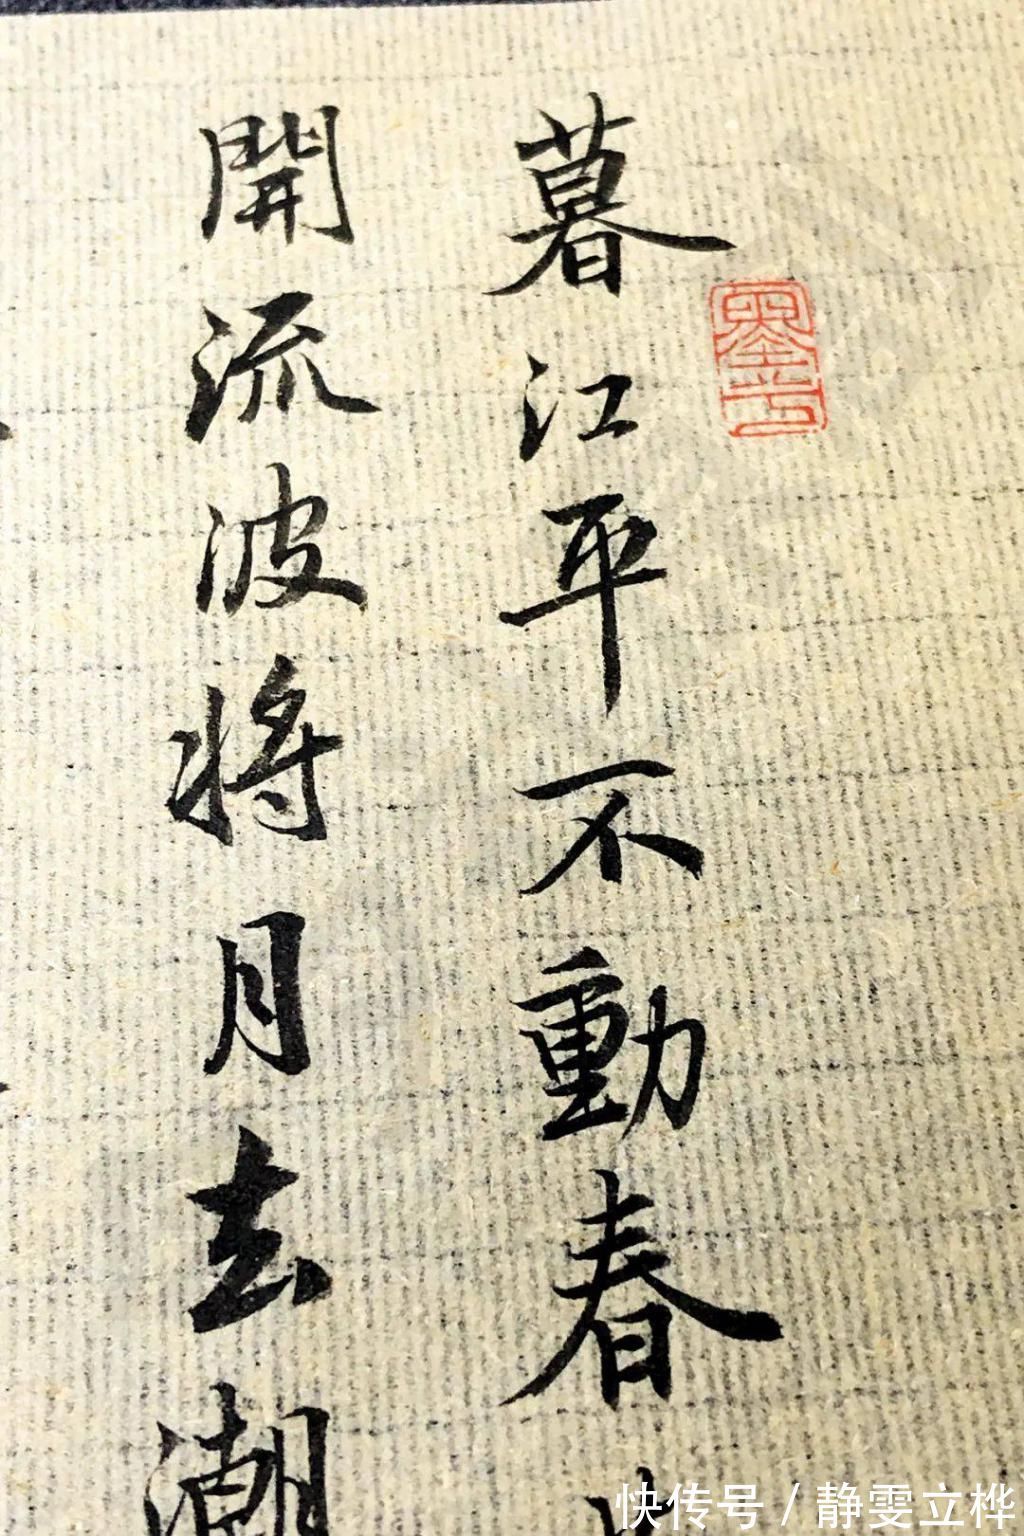 暮江平不動春
開流波將月去潮
快传号 / 静雯立桦